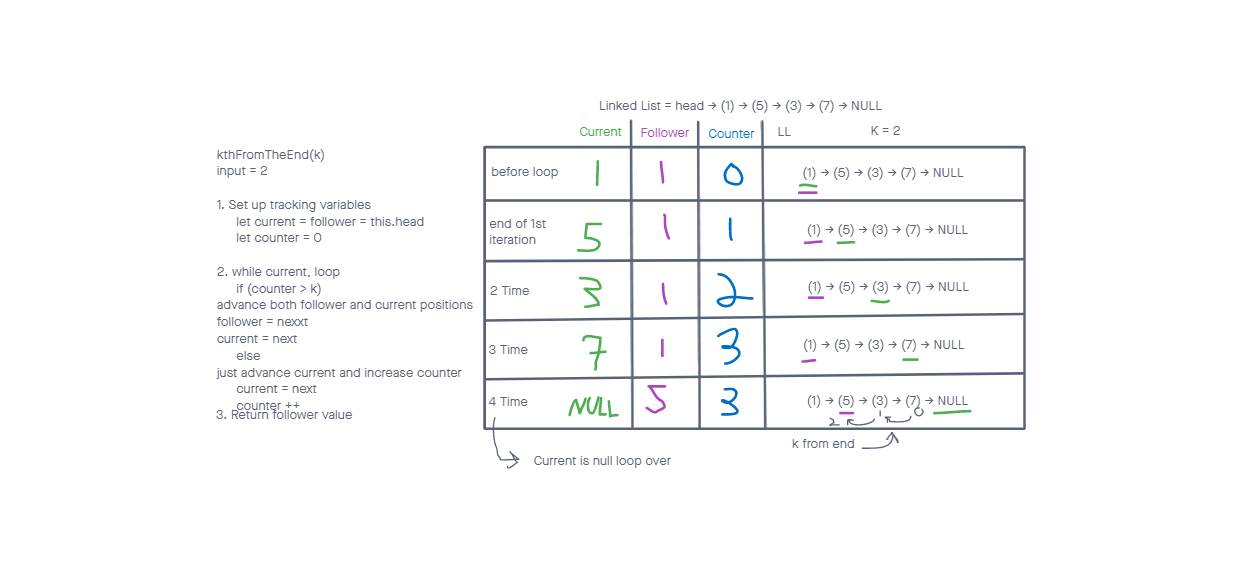 Linked List = head → (1) → (5) → (3) → (7) → NULL
Current Follower Counter LL K = 2
kthFromTheEnd(k)
input = 2
1. Set up tracking variables
let current = follower = this.head
let counter = 0
2. while current, loop
if (counter > k)
advance both follower and current positions
follower = nexxt
current = next
else
just advance current and increase counter
current = next
counter ++
3. Return follower value
before loop 1 1 0 (1) → (5) → (3) → (7) → NULL
end of 1st
iteration 5 1 1 (1) → (5) → (3) → (7) → NULL
2 Time 3 1 2 (1) → (5) → (3) → (7) → NULL
3 Time 7 1 3 (1) → (5) → (3) → (7) → NULL
4 Time NULL 5 3 (1) → (5) → (3) → (7) → NULL
2 1 0
k from end
Current is null loop over